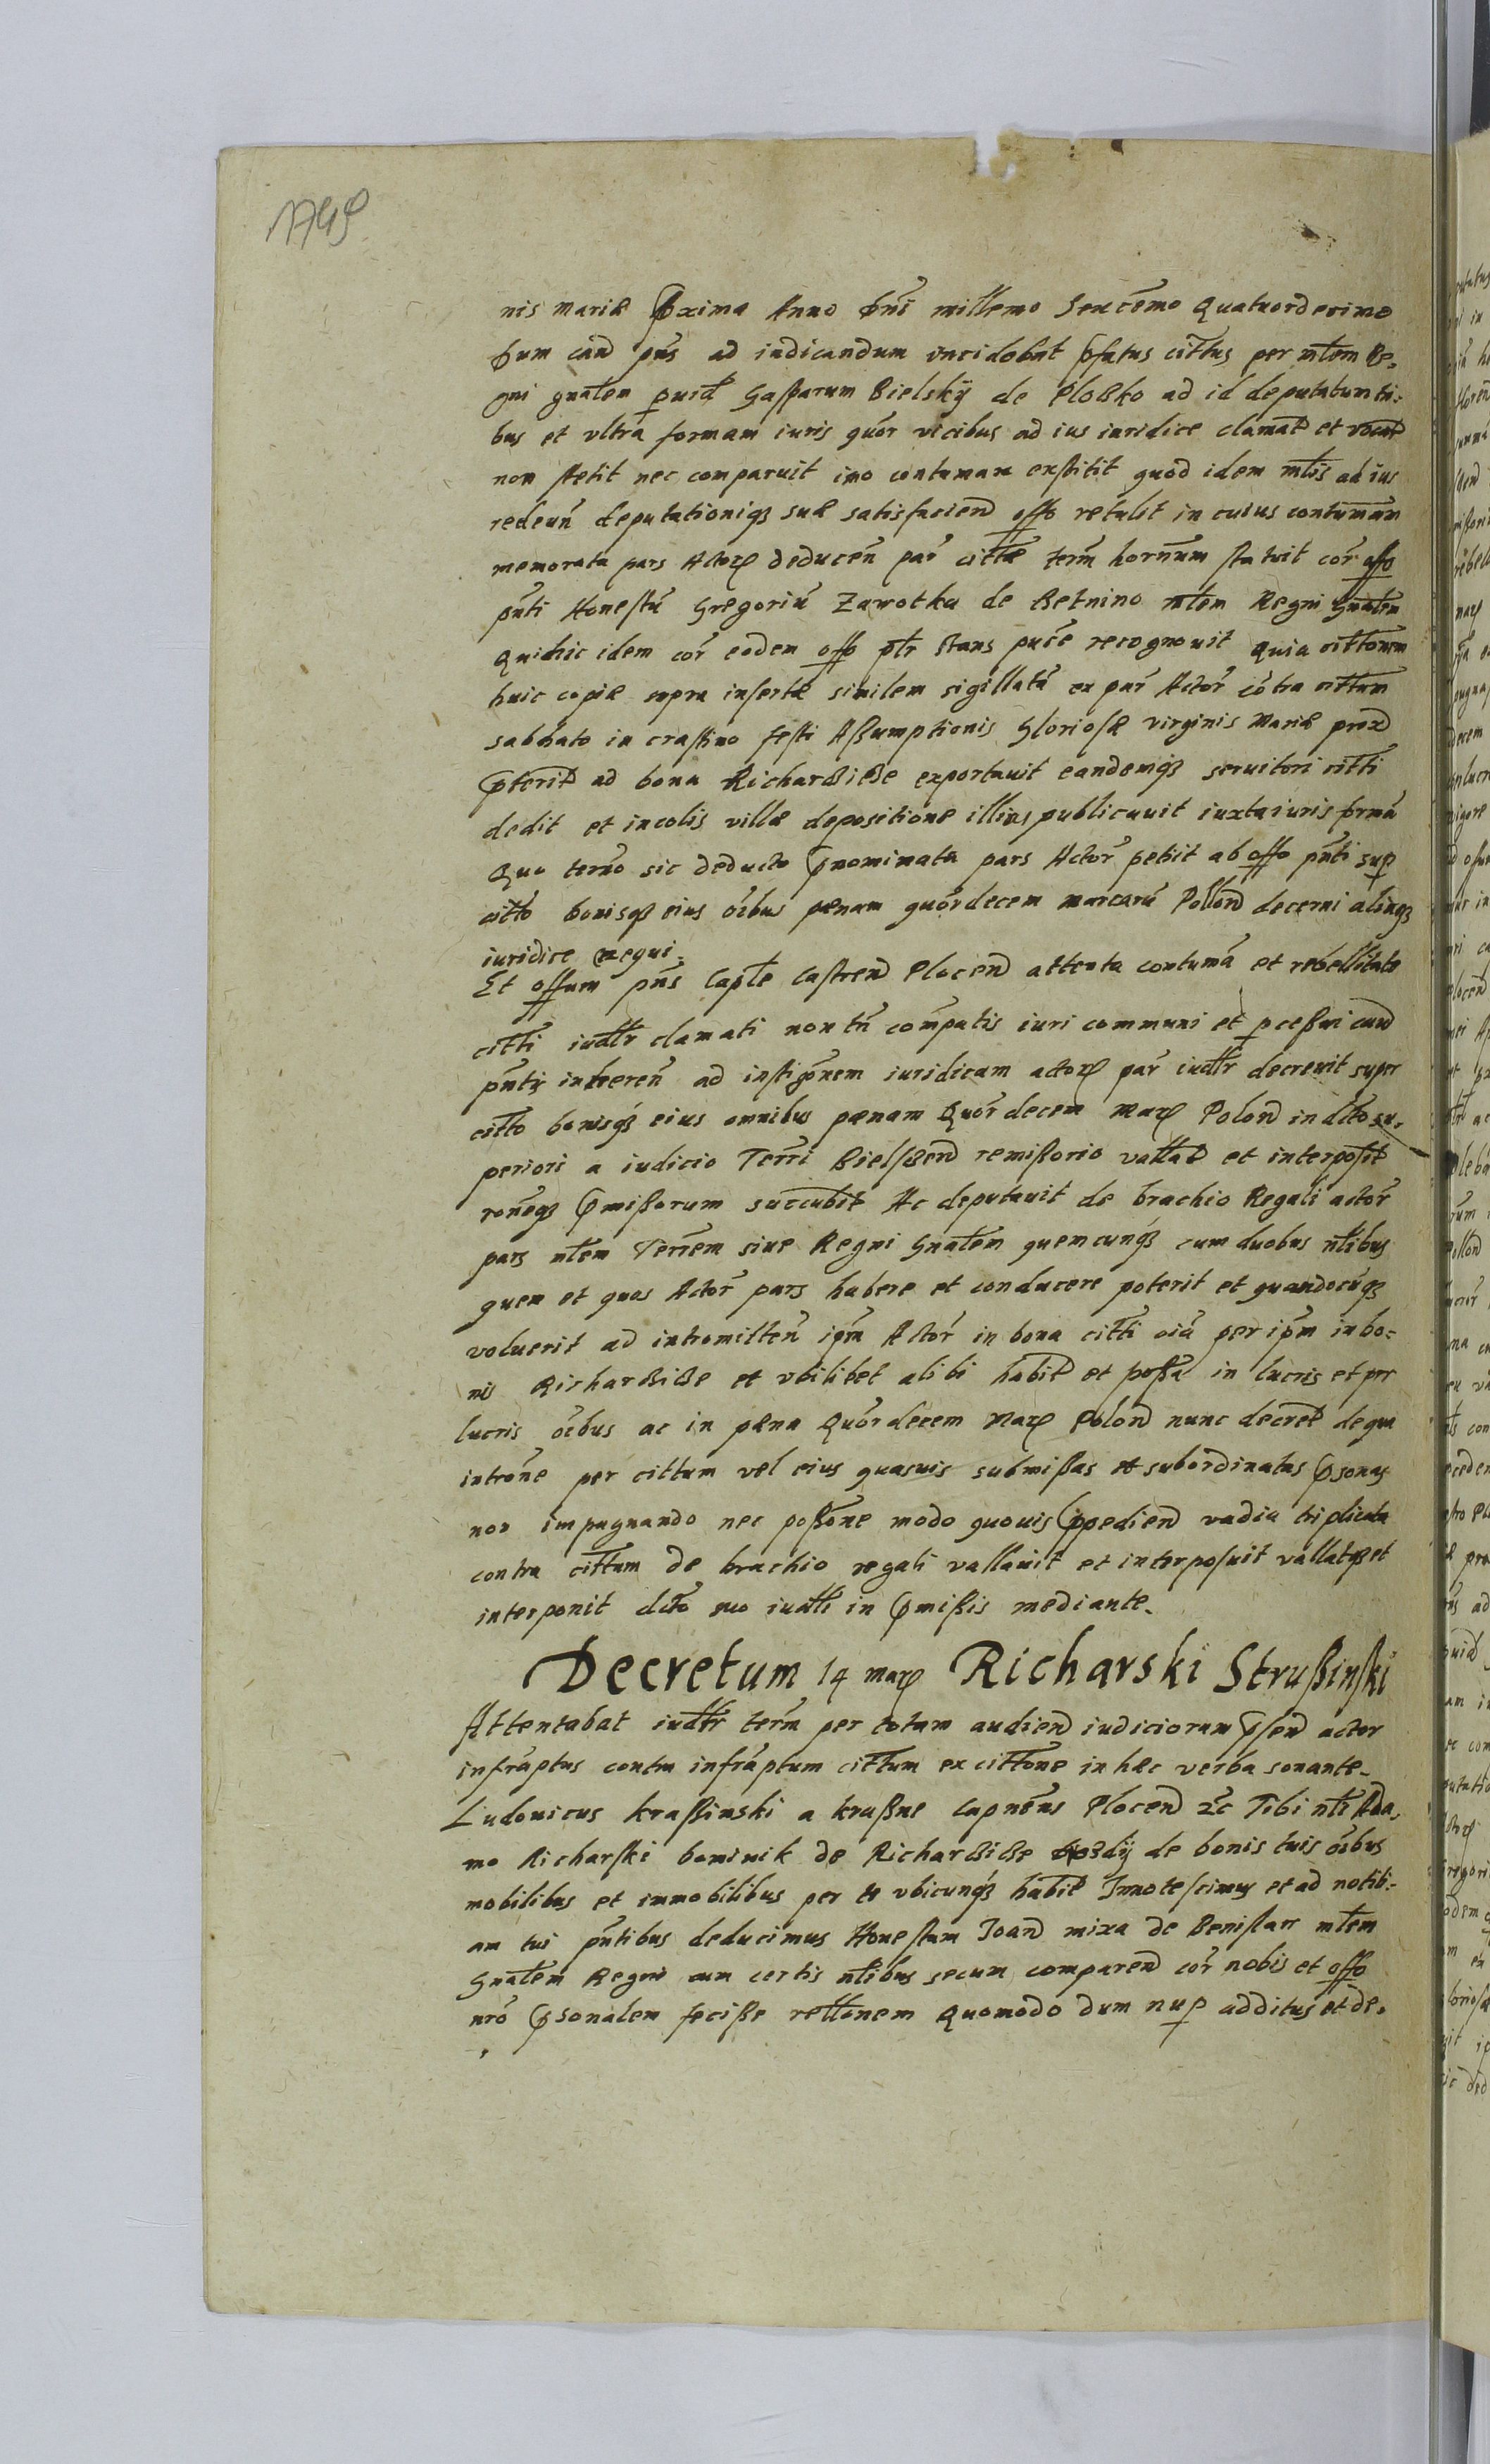 1749
nis Mariæ ꝓxima Anno Dñi millemo Sexcẽmo Quatuordecimo
Dum cau͠d pñs ad iudicandum incidebat pfatus cittus per mlem Re-
gni gnalem puid Gasparum Bielskÿ de Ploßko ad id deputatum ti-
bus et vltra formam iuris quor vicibus ad ius iuridice clamat et vocat
non stetit nec comparuit imo contumax exstitit quod idem mtis ad ius
redeuñ deputationiqȝ suæ satisfaciend offo retulit in cuius contumam
memorata pars Actor deduceñ par cittæ term hornum statuit cor offo
pñti Honestũ Gregoriũ Zawotka de Betnino mlem Regni Gnalem
Qui hic idem cor eodem offo pltr stans puce recognouit Quia cittonem
huic copiæ supra insertæ similem sigillatã ex par Actor cõtra cittum
sabbato in crastino festi Assumptionis Gloriosæ virginis Mariæ prox
pterit ad bona Richarßiße exportauit eandemqȝ seruitori citti
dedit et incolis villæ depositione illius publicauit iuxta iuris formã
Quo termo sic deducto pnominata pars Actor petiit ab offo pñti sup
citto bonisqȝ eius oibus pænam quordecem marcarũ Pollon decerni aliaqȝ
iuridice exequi.
Et offum pñs Captle Castren Plocen attenta contumã et rebellitate
citti iudtr clamati non tñ compatis iuri communi et pceßui cau͠d
pñtis inhæreñ ad instigonem iuridicam actor par iudtr decreuit super
citto bonisqȝ eius omnibus pænam Quor decem Mar Polon in dlto su-
periori a iudicio Terri Bielßen remißorio vallat et interposit
roneqȝ pmißorum succubit Ac deputauit de brachio Regali actor
pars mlem Terrem siue Regni Gnalem quemcunqȝ cum duobus nlibus
quem et quos Actor pars habere et conducere poterit et quandocũqȝ
voluerit ad intromitteñ ipm Actor in bona citti oia per ipm in bo-
nis Richarßiße et vbilibet alibi habit et possa in lucris et per
lucris oibus ac in pæna Quordecem Mar Polon nunc decret de qua
introne per cittum vel eius quasuis submißas et subordinatas psonas
non impugnando nec poßone modo quouis ppediend vadia triplicata
contra cittum de brachio regali vallauit et interposuit vallatqȝ et
interponit dcto suo iudtli in pmißis mediante.
Decretum 14 mar Richarski Strußinski
Attentabat iudtr term per totam audien iudiciorum psen actor
infraptus contra infraptum cittum ex cittone in hæc verba sonante.
Ludouicus Kraßinski a Kraßne Capneus Plocen ꝛc Tibi nli Ada,
mo Richarski bominik de Richarßiße de bonis tuis oibus
mobilibus et immobilibus per te vbicunqȝ habit Innotescimus et ad notiti-
am tui pñtibus deducimus Honestum Joan mixa de Benistarr mlem
Gnalem Regni cum certis nlibus secum comparen cor nobis et offo
nro psonalem feciße rellonem Quomodo dum nup additus et de-